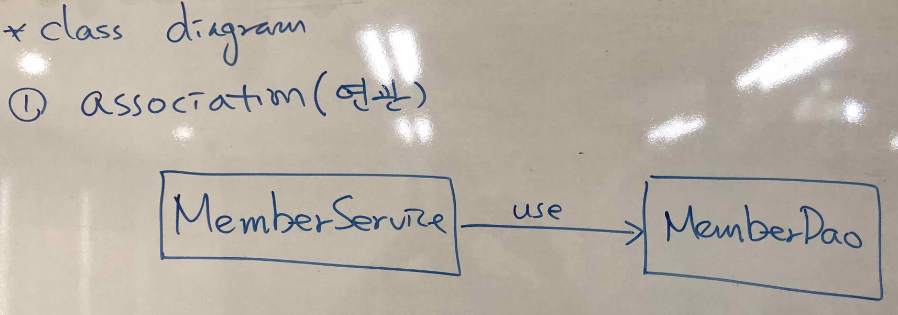 * class diagram
① association(연관)
MemberService use MemberDao